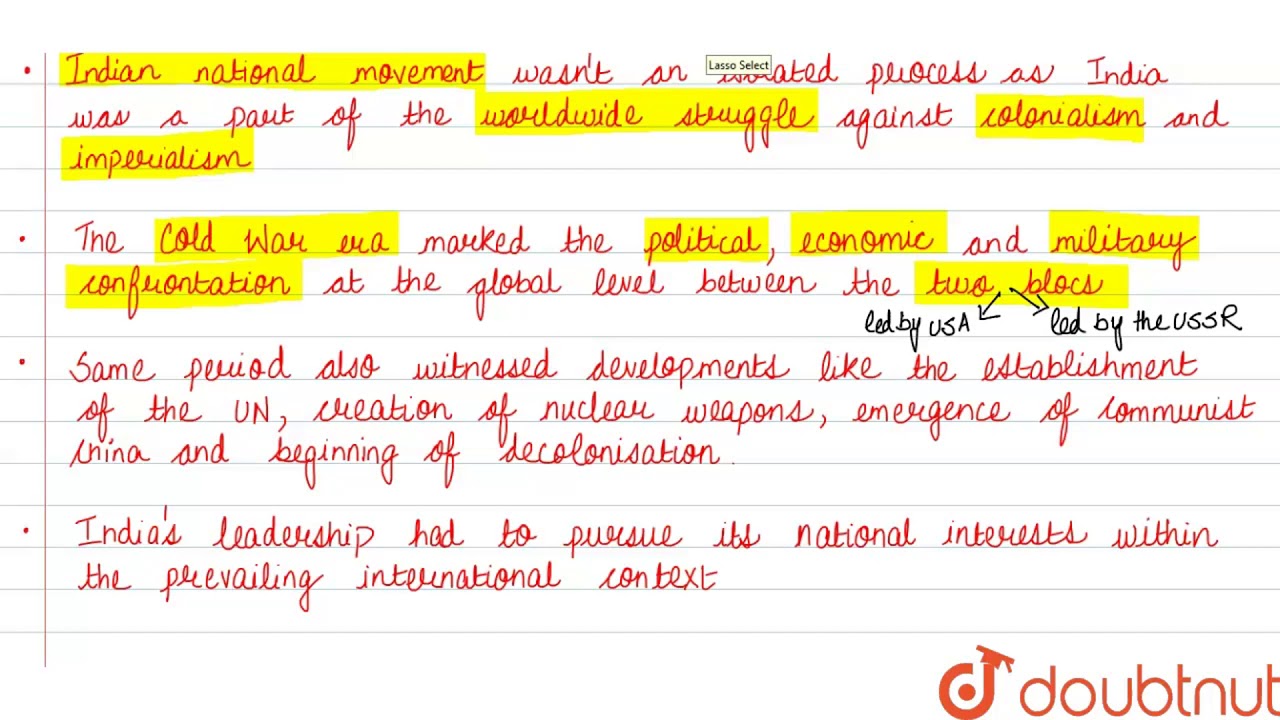 Lasso Select
• Indian national movement wasn't an isolated process as India
was a part of the worldwide struggle against colonialism and
imperialism
• The Cold War era marked the political, economic and military
confrontation at the global level between the two blocs
led by USA led by the USSR
• Same period also witnessed developments like the establishment
of the UN, creation of nuclear weapons, emergence of communist
China and beginning of decolonisation.
• India's leadership had to pursue its national interests within
the prevailing international context
doubtnut